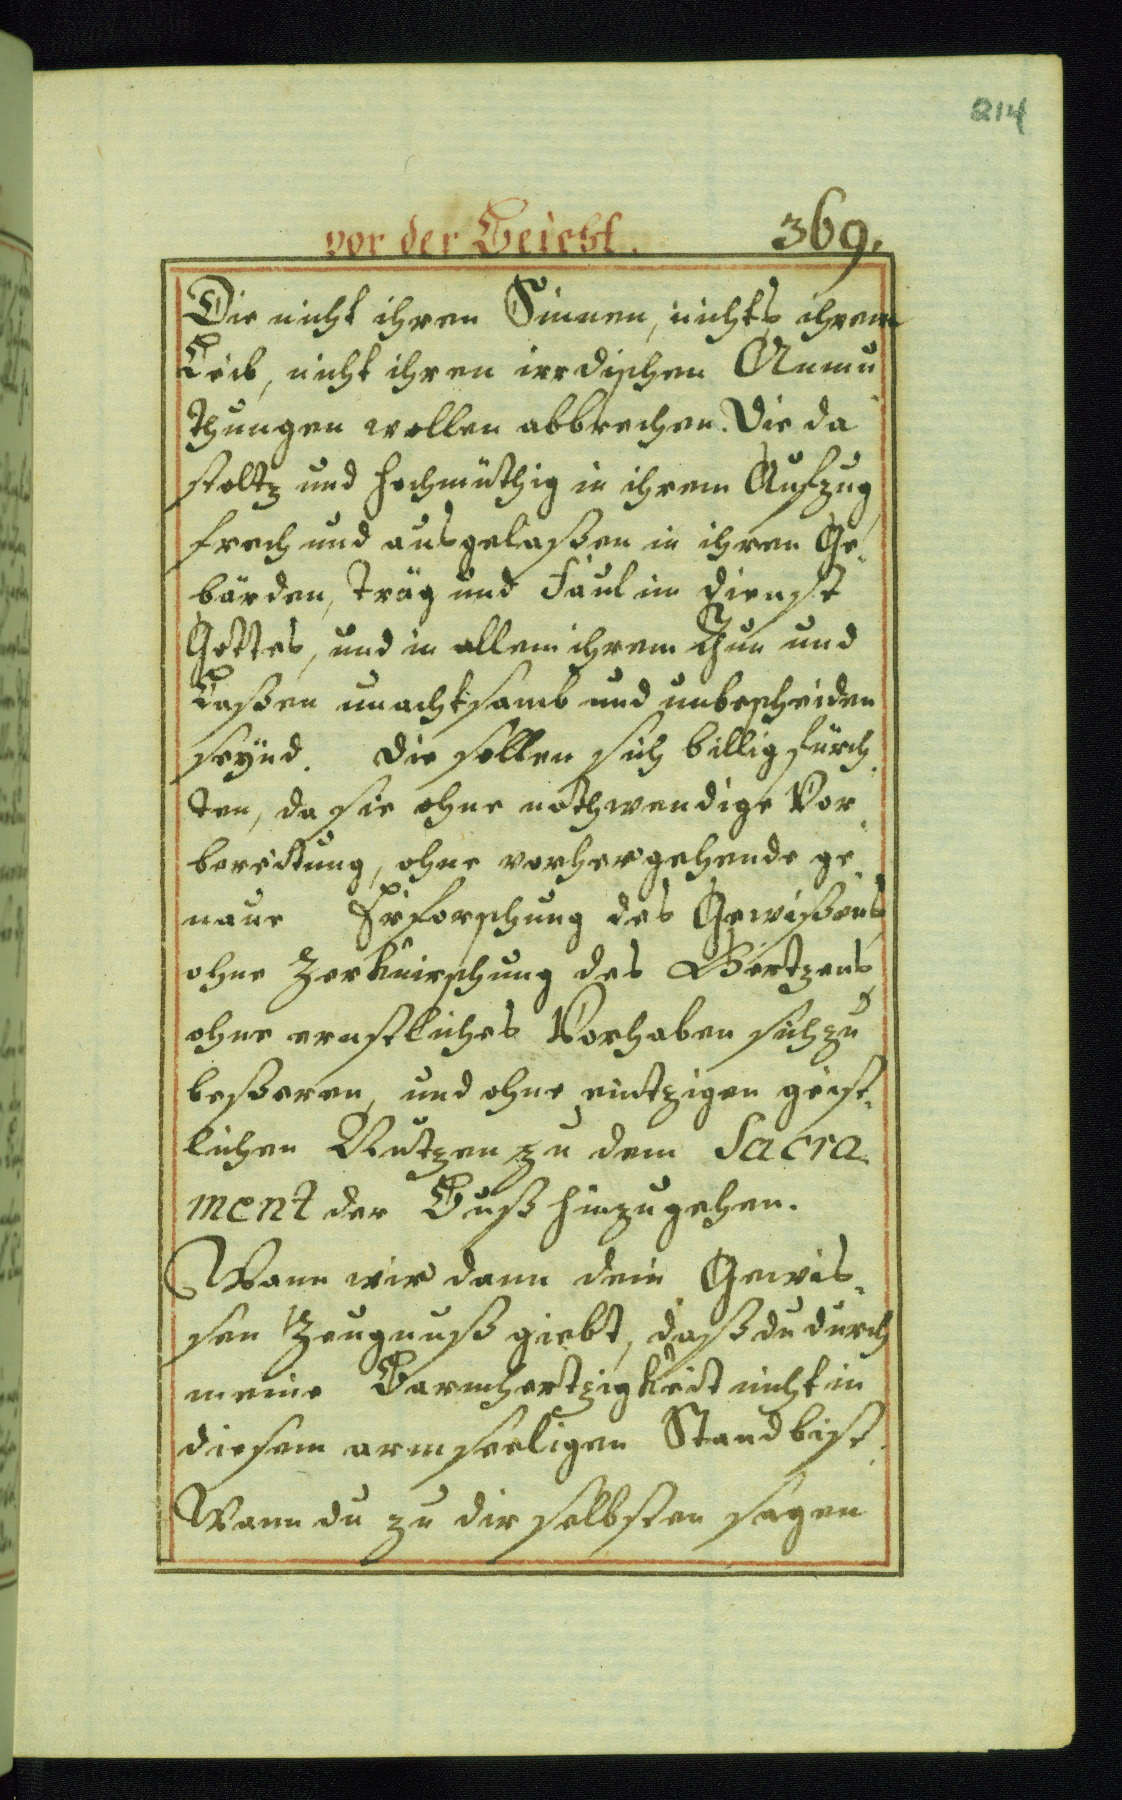 214
vor der Beicht. 369.
Die nicht ihren Sinnen, nichts ihrem
Leib, nicht ihren irrdischen Anmu
thungen wollen abbrechen. Die da
stoltz und hochmüthig in ihrem Aufzug
frech und ausgelaßen in ihren Ge-
bärden, träg und faul im dienst
Gottes, und in allem ihrem Thun und
Laßen unachtsamb und unbescheiden
seynd. die sollen sich billig fürch
ten, da sie ohne nothwendige Vor
bereitung, ohne vorhergehende ge-
naue Erforschung des Gewißens
ohne Zerknirschung des Hertzens
ohne ernstliches Vorhaben sich zu
beßeren, und ohne eintzigen geist-
lichen Nutzen zu dem Sacra-
ment der Buß hinzugehen.
Wann wir dann dein Gewis-
sen Zeugnuß giebt, daß du durch
meine Barmhertzigkeit nicht in
diesem armseeligen Stand bist.
Wann du zu dir selbsten sagen